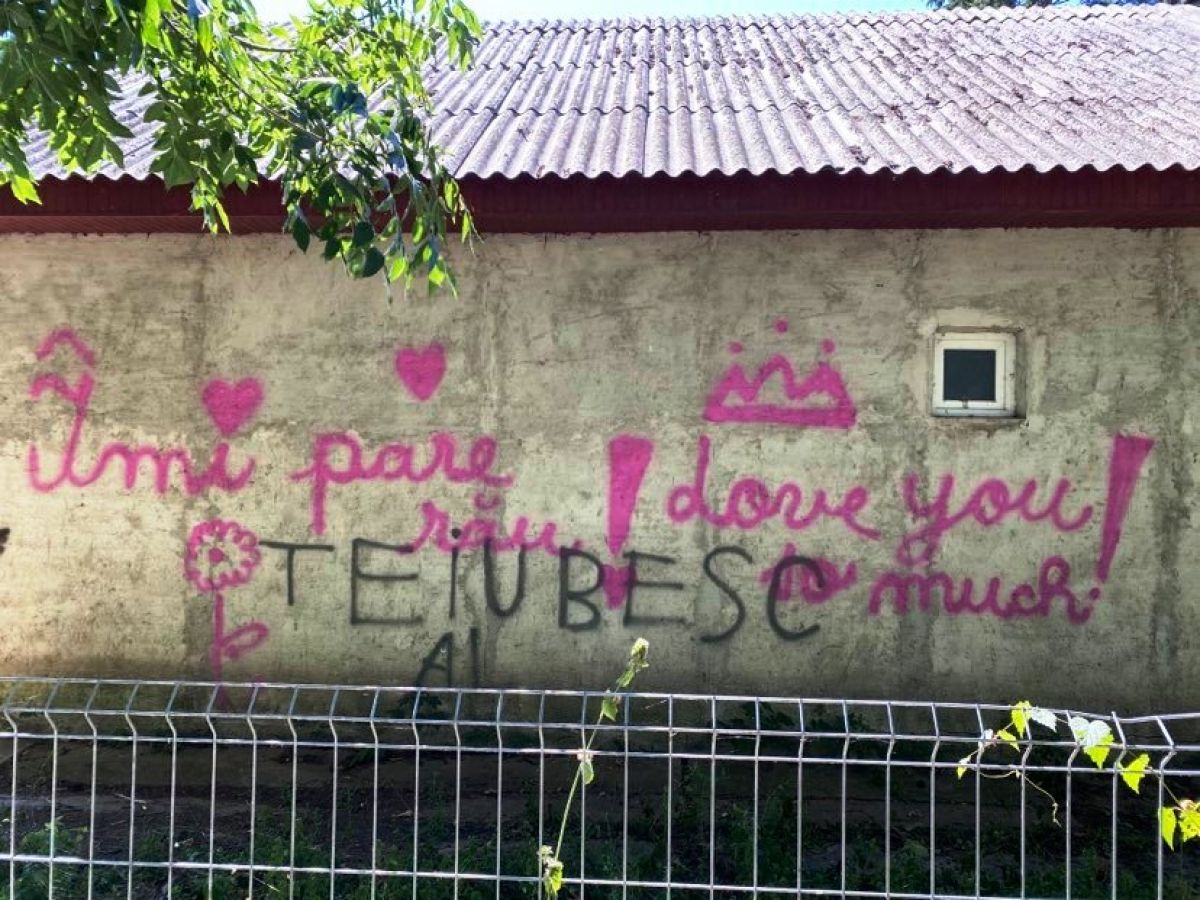 Îmi pare
rău !
I love you !
to much.
TE IUBESC
AI